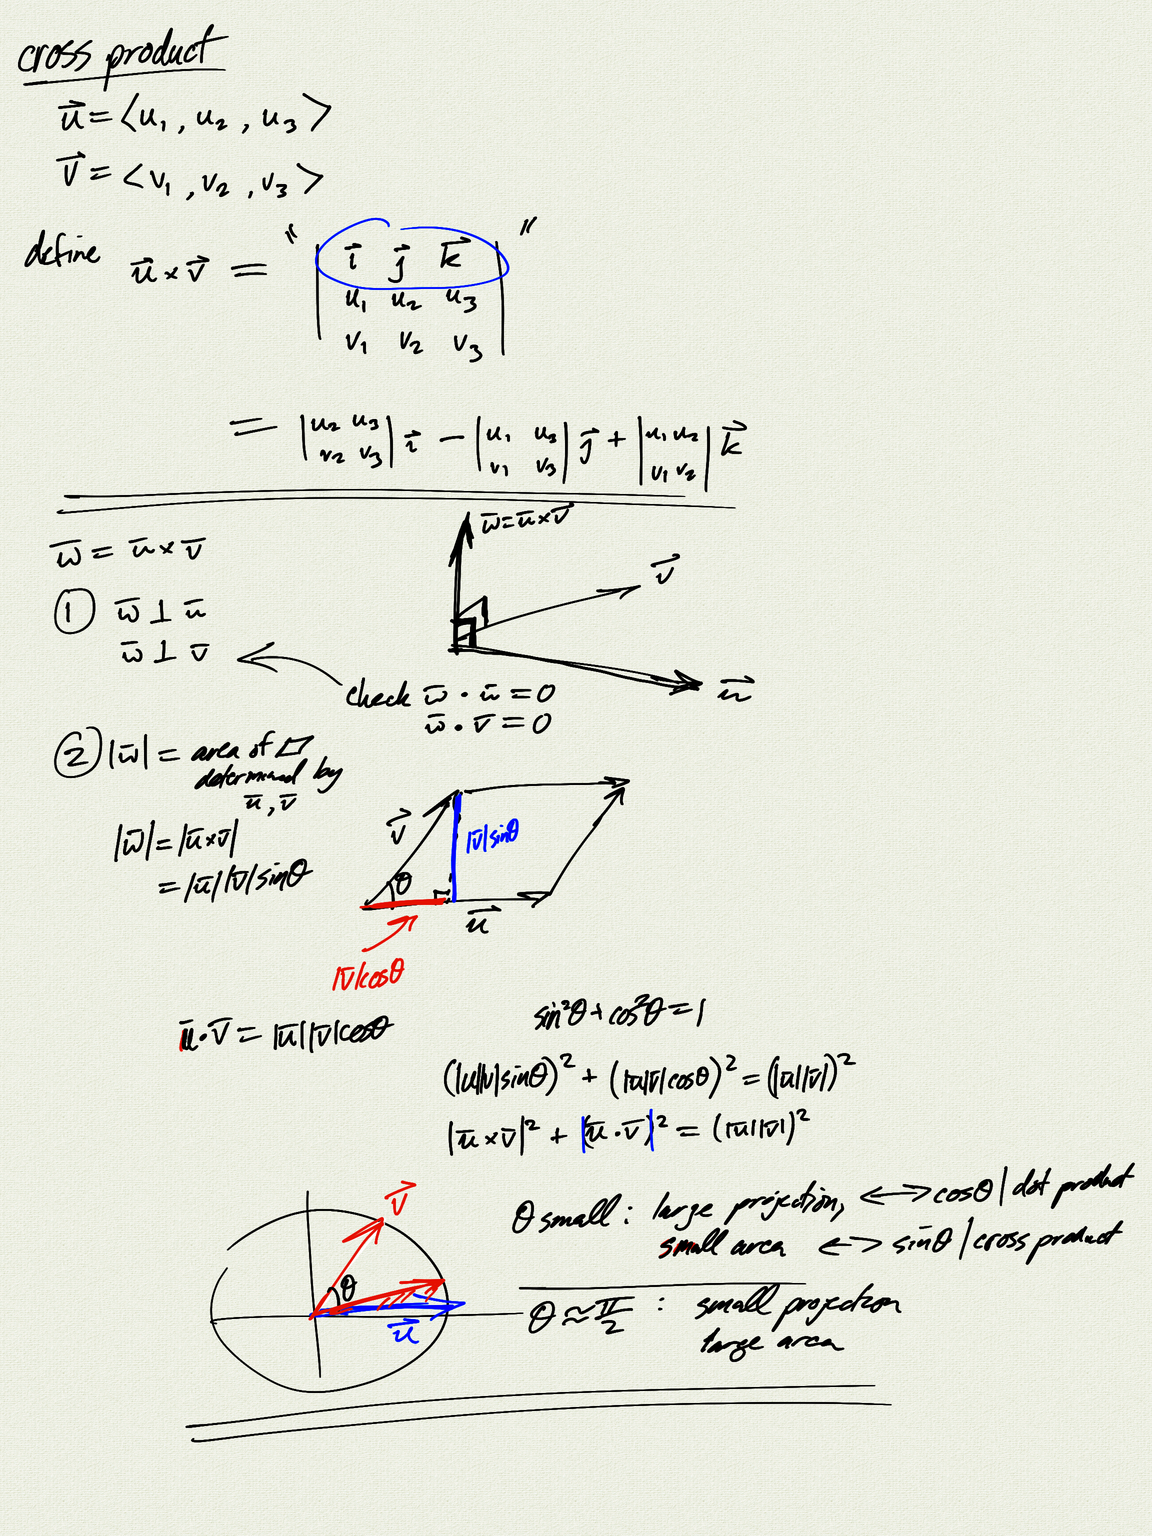 cross product
u⃗ = <u₁, u₂, u₃>
v⃗ = <v₁, v₂, v₃>
define u⃗ × v⃗ = " | i⃗ j⃗ k⃗ | "
u₁ u₂ u₃
v₁ v₂ v₃
= | u₂ u₃ | i⃗ − | u₁ u₃ | j⃗ + | u₁ u₂ | k⃗
v₂ v₃ v₁ v₃ v₁ v₂
w̄ = ū × v̄
w̄ = ū × v̄
v⃗
u⃗
① w̄ ⊥ ū
w̄ ⊥ v̄
check w̄ · ū = 0
w̄ · v̄ = 0
② |w̄| = area of ▱
determined by
ū, v̄
|w̄| = |ū × v̄|
= |ū||v̄| sinθ
v⃗
|v̄| sinθ
θ
u⃗
|v̄| cosθ
ū · v̄ = |ū||v̄| cosθ
sin²θ + cos²θ = 1
(|u||v| sinθ)² + (|ū||v̄| cosθ)² = (|ū||v̄|)²
|ū × v̄|² + |ū · v̄|² = (|ū||v̄|)²
v⃗
θ
u⃗
θ small: large projection, ↔ cosθ | dot product
small area ↔ sinθ | cross product
θ ≈ π/2 : small projection
large area